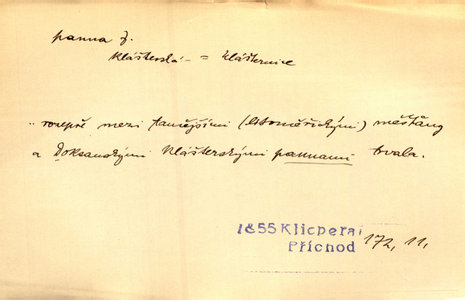 panna f.
klášterská - = klášternice
.. rozepře mezi tamějšími (litoměřickými) měšťany
a Doksanskými klášterskými pannami trvala.
1855 Klicpera
Příchod 172, 11.